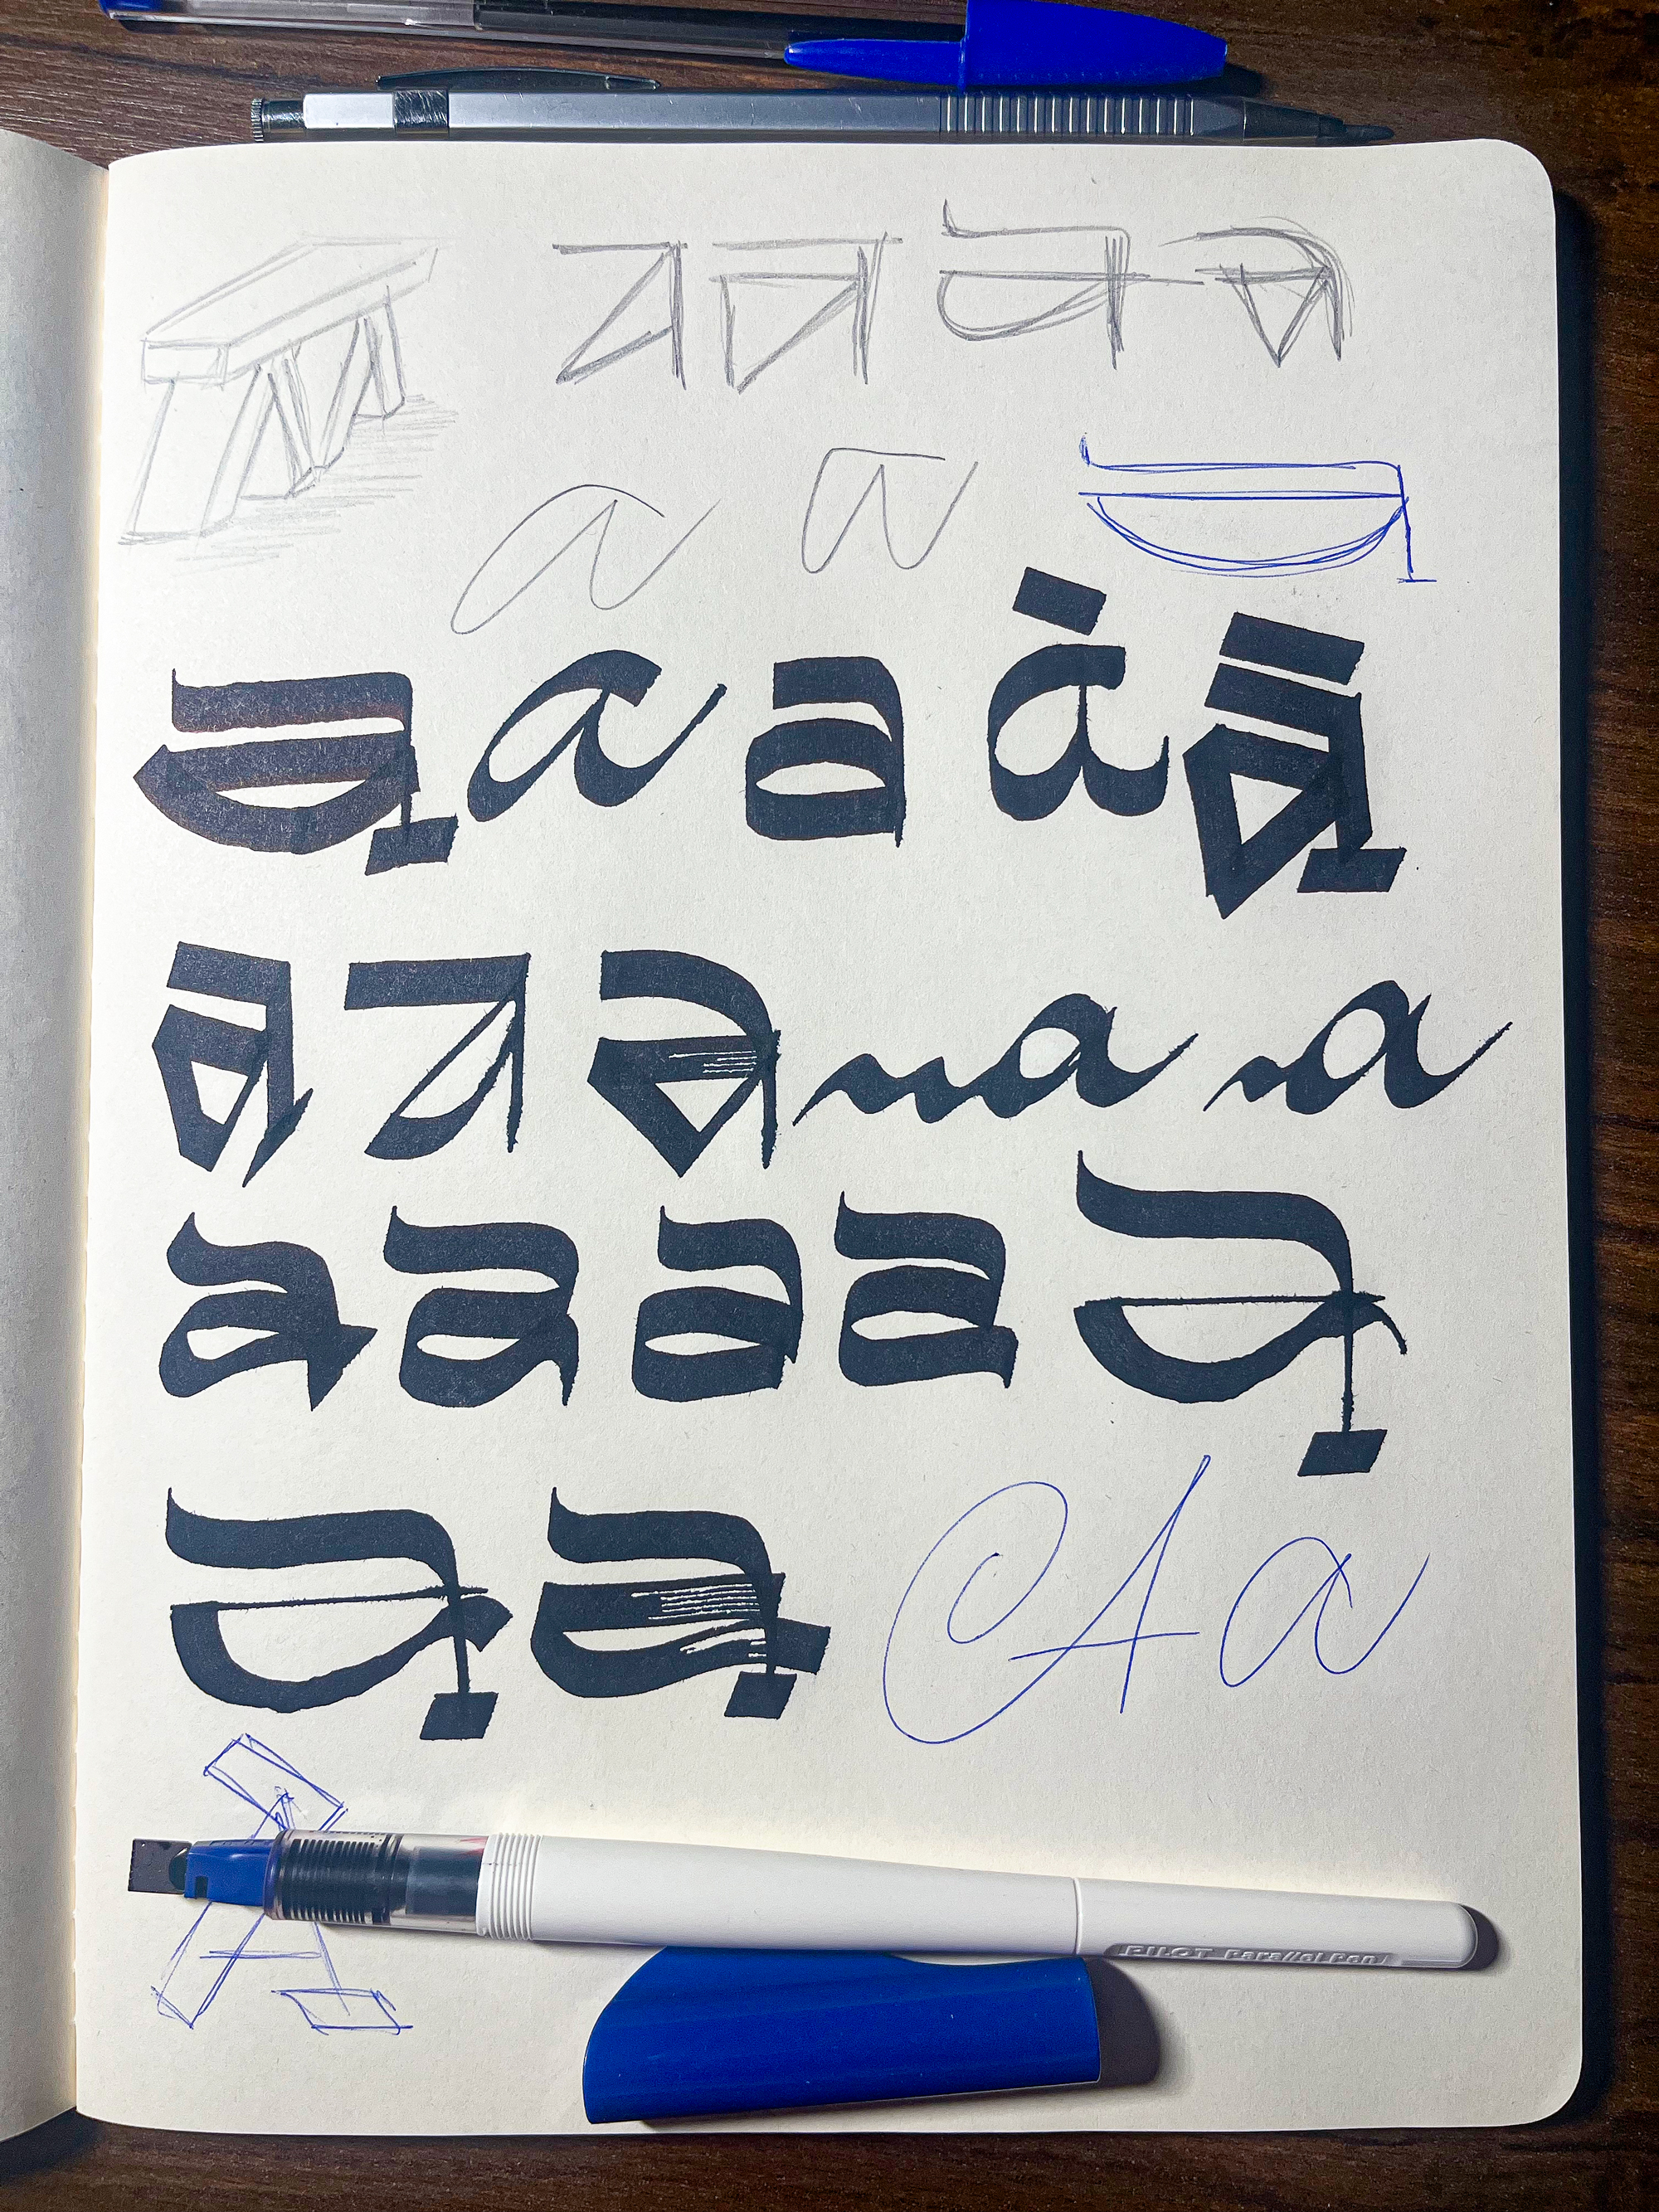 a a a a
a a a
a a a à ā
a a a a a
a a a a a
a a A a
A
PILOT Parallel Pen